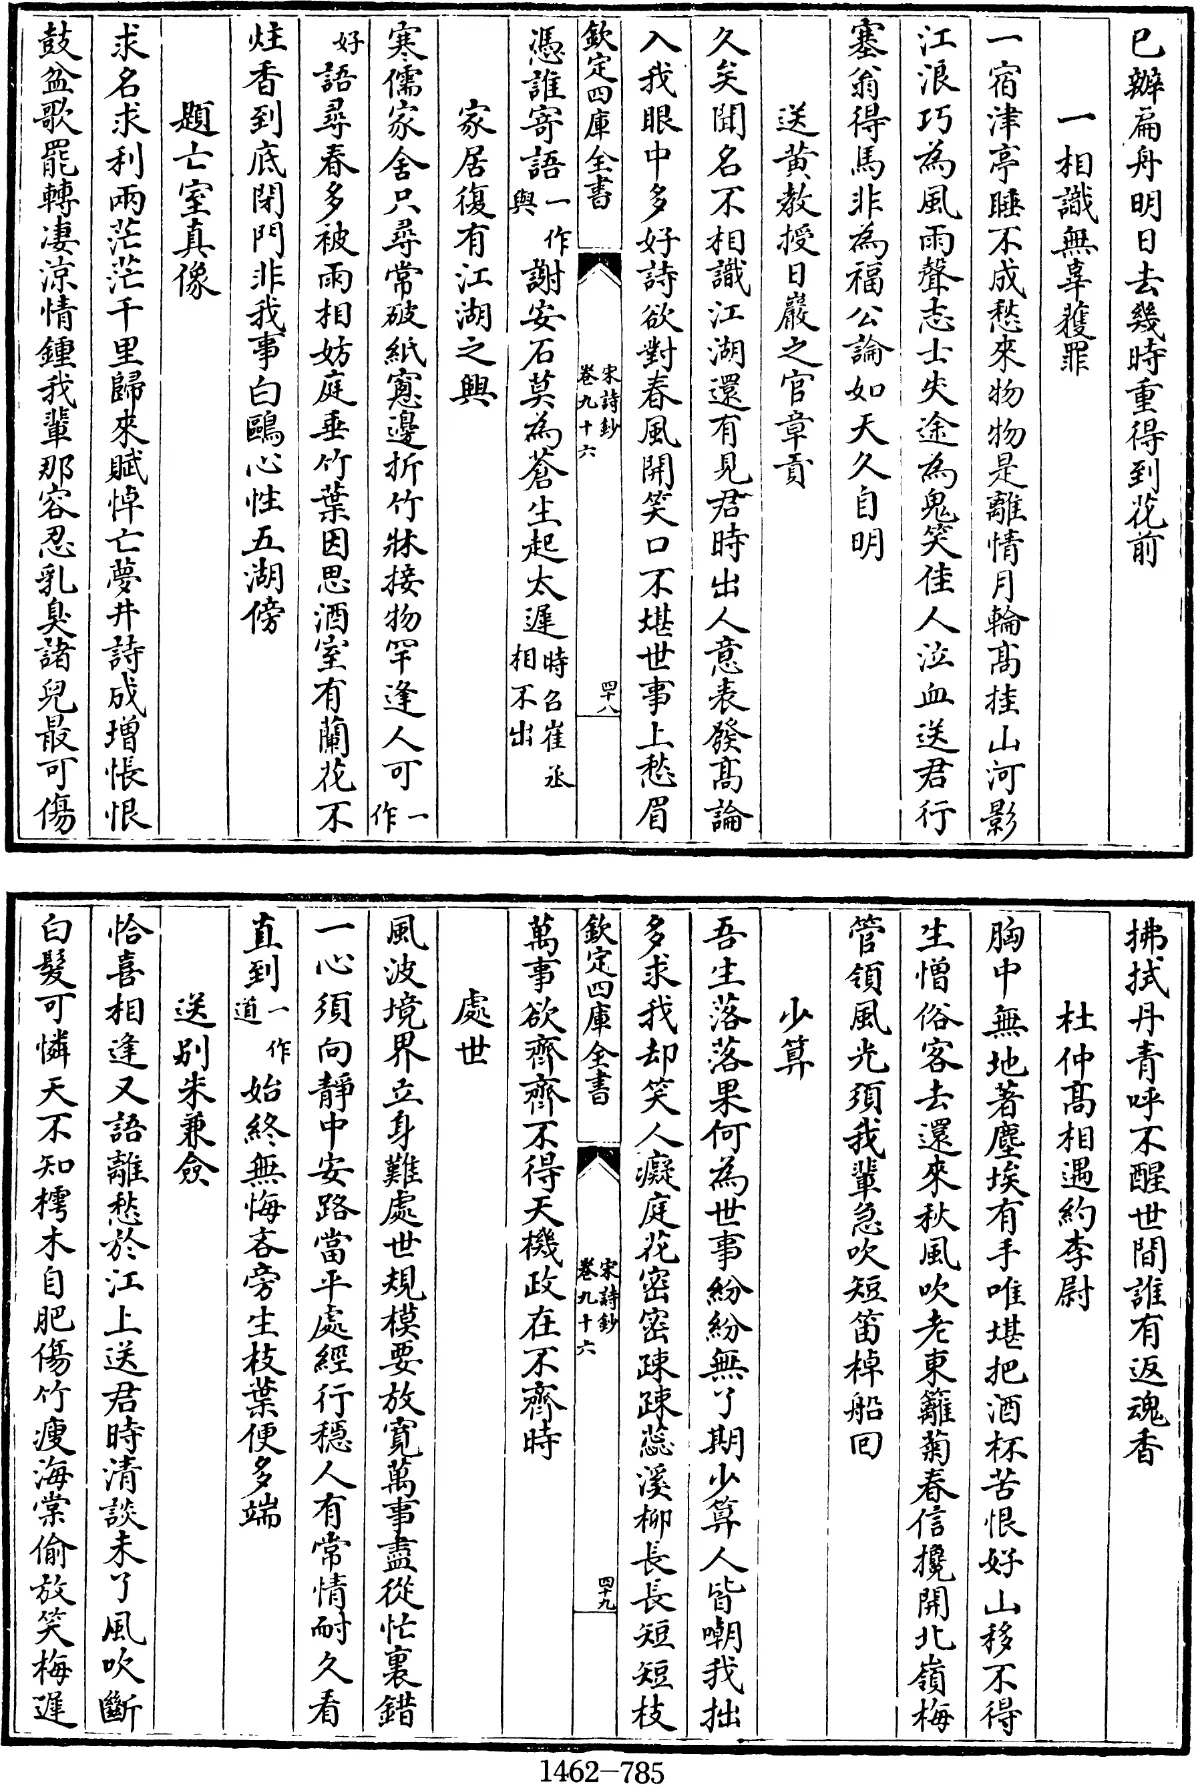 已辦扁舟明日去幾時重得到花前
一相識無辜獲罪
一宿津亭睡不成愁來物物是離情月輪髙挂山河影
江浪巧為風雨聲志士失途為鬼笑佳人泣血送君行
塞翁得馬非為福公論如天久自明
送黄教授日巖之官章貢
久矣聞名不相識江湖還有見君時出人意表發髙論
入我眼中多好詩欲對春風開笑口不堪世事上愁眉
欽定四庫全書
宋詩鈔
卷九十六
四十八
憑誰寄語一作與謝安石莫為蒼生起太遲時召崔丞相不出
家居復有江湖之興
寒儒家舍只尋常破紙窻邊折竹牀接物罕逢人可一作
好語尋春多被雨相妨庭垂竹葉因思酒室有蘭花不
炷香到底閉門非我事白鷗心性五湖傍
題亡室真像
求名求利兩茫茫千里歸來賦悼亡夢井詩成增悵恨
鼓盆歌罷轉凄涼情鍾我輩那容忍乳臭諸兒最可傷
拂拭丹青呼不醒世間誰有返魂香
杜仲髙相遇約李尉
胸中無地著塵埃有手唯堪把酒杯苦恨好山移不得
生憎俗客去還來秋風吹老東籬菊春信攙開北嶺梅
管領風光須我輩急吹短笛棹船回
少算
吾生落落果何為世事紛紛無了期少算人皆嘲我拙
多求我却笑人癡庭花密密疎疎蕊溪柳長長短短枝
欽定四庫全書
宋詩鈔
卷九十六
四十九
萬事欲齊齊不得天機政在不齊時
處世
風波境界立身難處世規模要放寛萬事盡從忙裏錯
一心須向靜中安路當平處經行穩人有常情耐久看
直到一作道始終無悔吝旁生枝葉便多端
送别朱兼僉
恰喜相逢又語離愁於江上送君時清談未了風吹斷
白髮可憐天不知樗木自肥傷竹瘦海棠偷放笑梅遲
1462—785